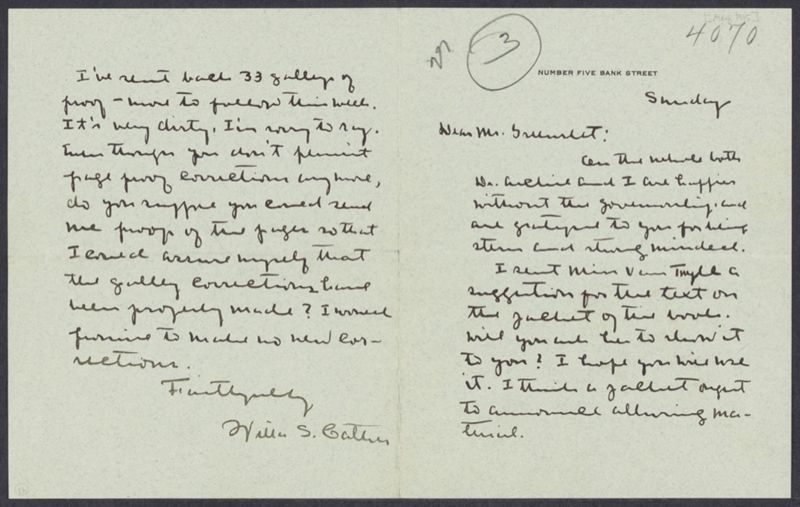 4070
3
NUMBER FIVE BANK STREET
Sunday
Dear Mr. Greenslet:
On the whole both
Dr. Archie and I are happier
without the governorship and
are grateful to you for being
stern and strong minded.
I sent Miss Van Tuyll a
suggestion for the text on
the jacket of the book.
Will you ask her to show it
to you? I hope you will use
it. I think a jacket ought
to announce alluring ma-
terial.
I've sent back 33 galleys of
proof - more to follow this week.
It's very dirty, I'm sorry to say.
Even though you don't permit
page proof corrections any more,
do you suppose you could send
me proofs of the pages so that
I could assure myself that
the galley corrections have
been properly made? I would
promise to make no new cor-
rections.
Faithfully
Willa S. Cather